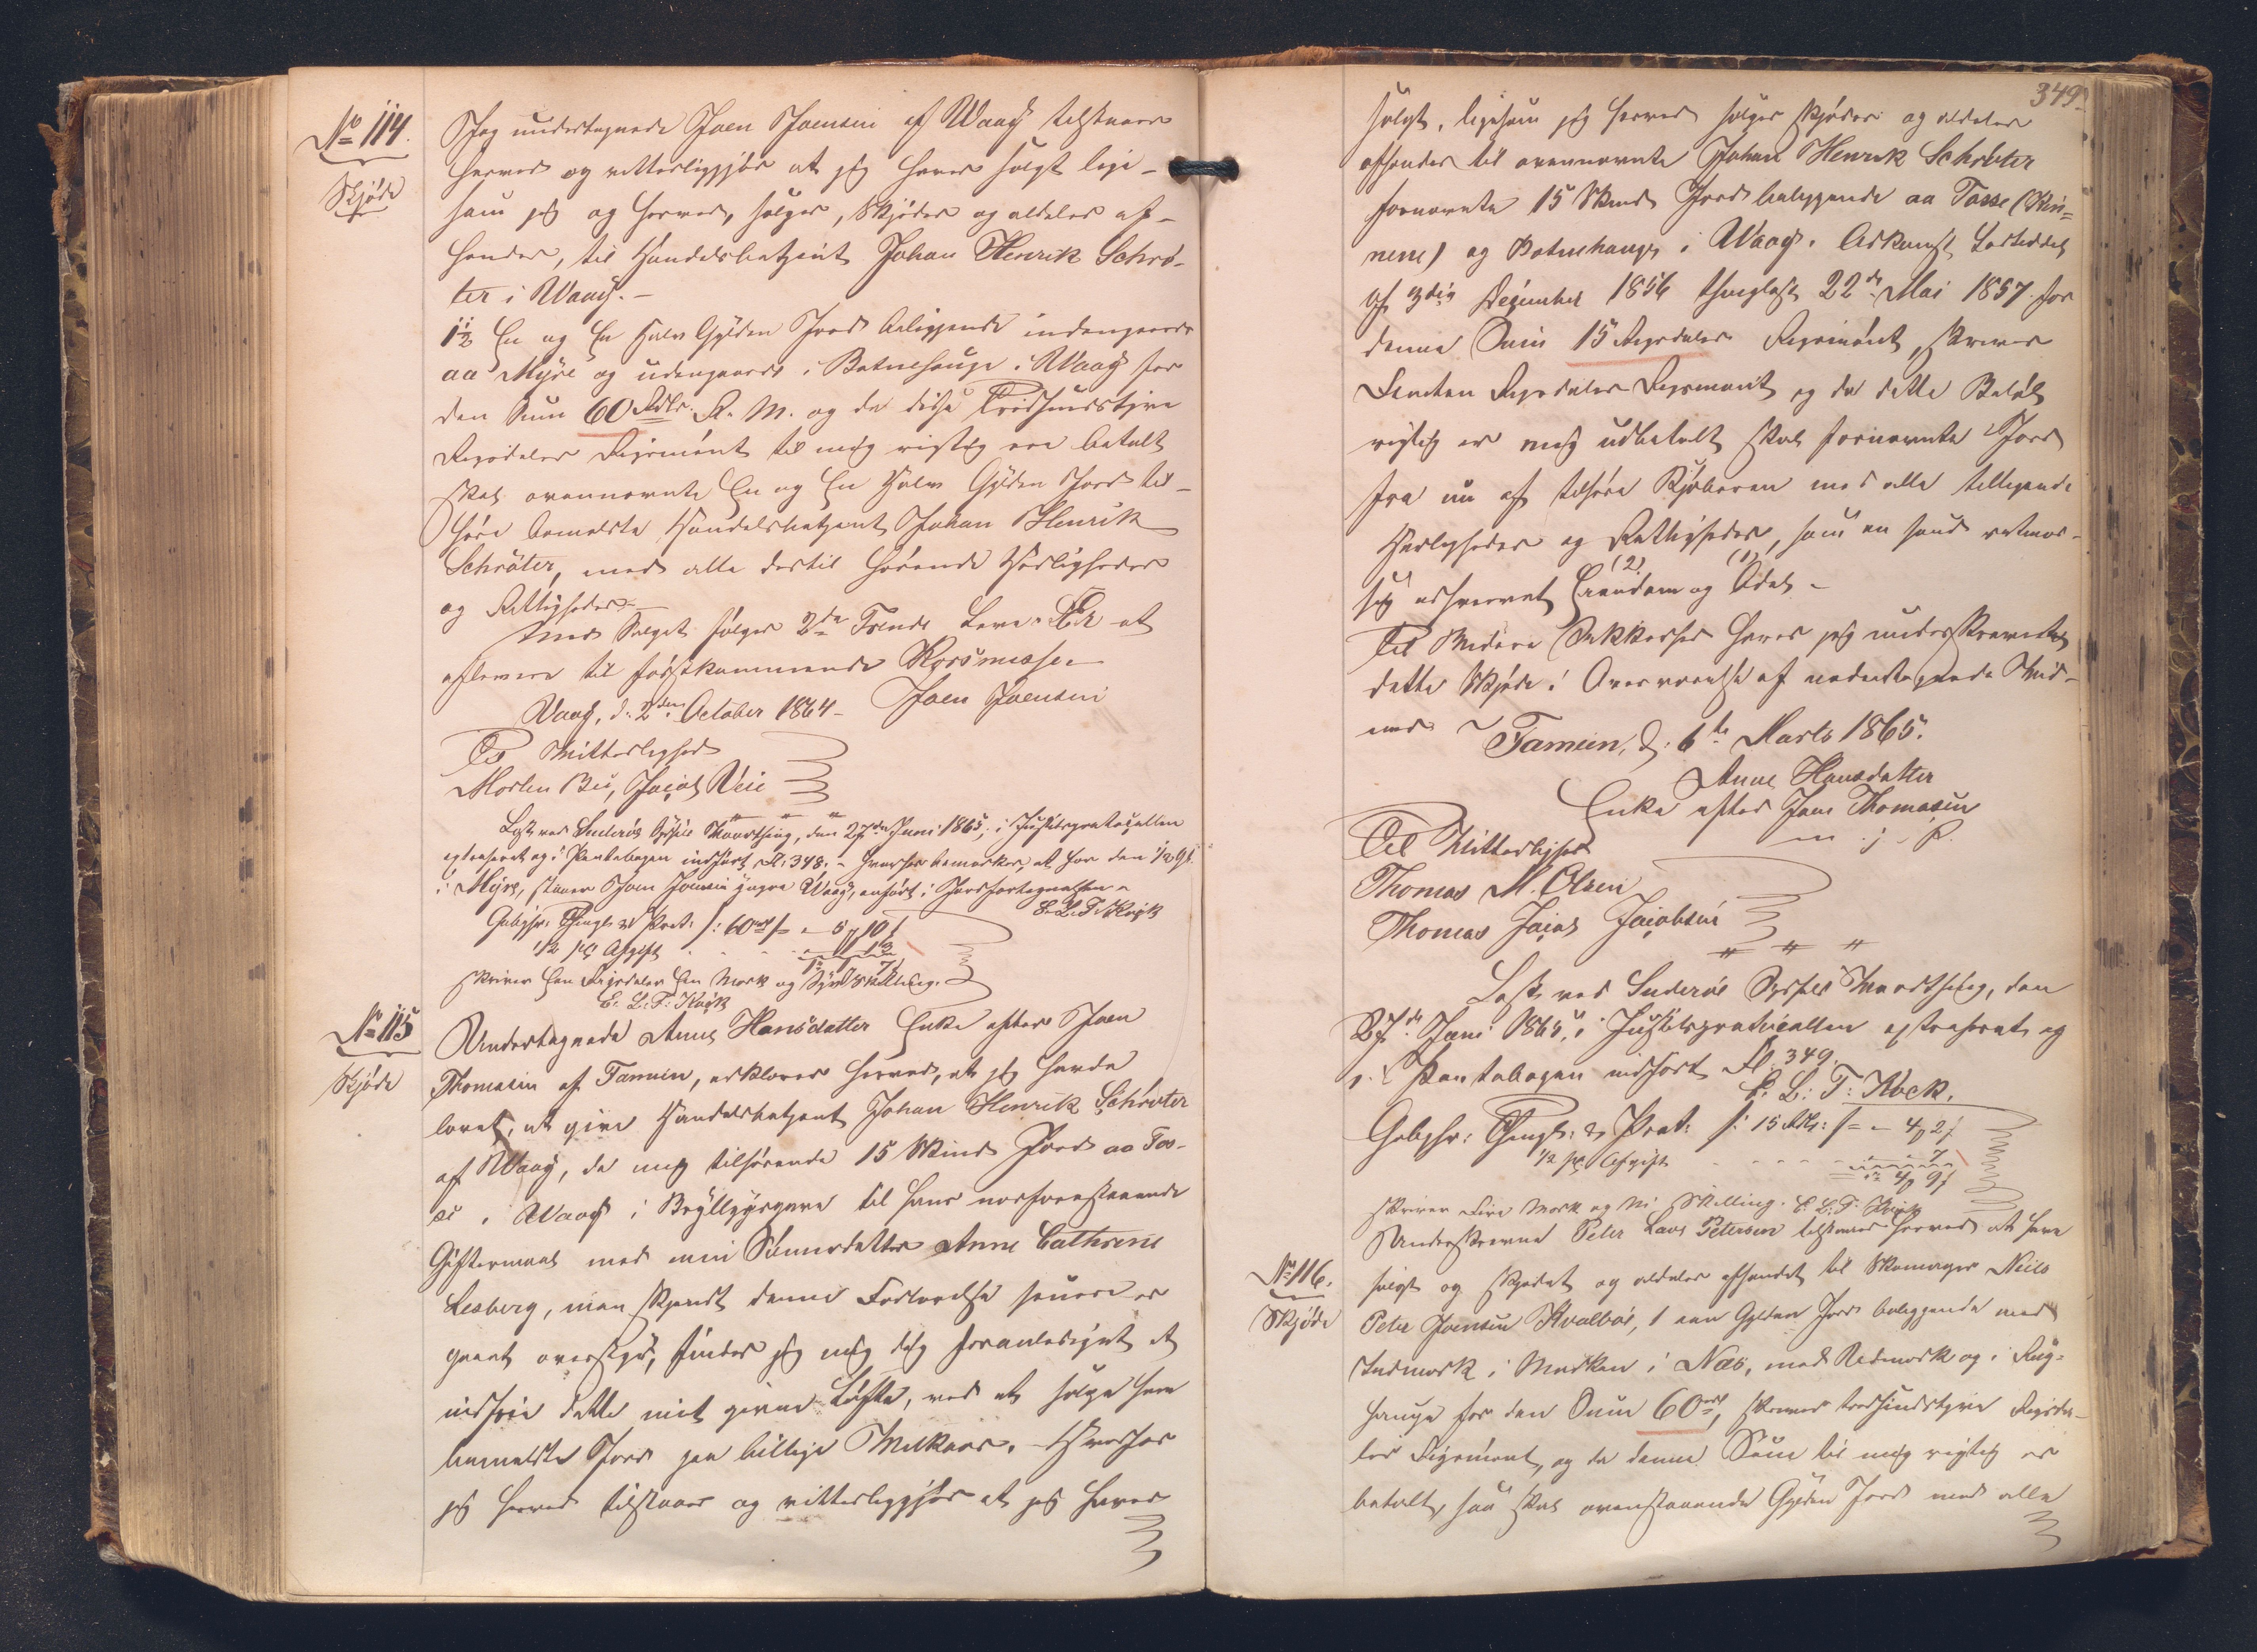 No 114.
Skjøde
Jeg undertegnede Joen Joensen af Waag tilstaaer
herved og vitterliggjør at jeg haver solgt lige-
som jeg og herved, sælger, skjøder og aldeles af-
hænder, til Handelsbetjent Johan Henrik Schrø-
ter i Waag. -
1½ En og En Halv Gylden Jord beliggende indengaards
aa Myre og udengaards i Botnehauge i Waag for
den Sum 60 Rdlr. R. M. og da disse Tredsindstyve
Rigsdaler Rigsmønt til mig rigtig ere betalt
skal ovennævnte En og En Halv Gylden Jord til-
høre bemeldte Handelsbetjent Johan Henrik
Schröter, med alle dertil hørende Herligheder
og Rettigheder. -
Med Salget følger 2de
aflevere til førstkommende Korsmisse. -
Waag, d. 2den October 1864 - Joen Joensen
Til Vitterlighed
Morten Bei, Jacob Veie
Læst ved Suderøe Syssels Vaarthing, den 27de Juni 1865, i Justitsprotocollen
extraheret og i Pantebogen indført Fl. 348. - hvorhos bemærkes, at for den ½ Gl.
i Myre, staaer Joen Joensen yngre Waag, anført i Jordfortegnelsen -
E. L. T. Kock
Gebyhr: Thingl. & Prot. /: 60 rd /= - 5 10
½ pC Afgift - - - 13
1 1 7
skriver Een Rigsdaler Een Mark og Syv Skilling.
E. L. T. Kock
No 115
Skjøde
Undertegnede Anne Hansdatter Enke efter Joen
Thomasen af Famien, erklærer herved, at jeg havde
lovet, at give Handelsbetjent Johan Henrik Schrøter
af Waag, de mig tilhørende 15 Skind Jord aa Tos-
se i Waag i Bryllupsgave til hans nuforestaaende
Giftermaal med min Sønnedatter Anne Cathrine
Lesberg, men skjøndt denne Forlovelse senere er
gaaet overstyr, finder jeg mig dog foranlediget at
indfrie dette mit givne Løfte, ved at sælge ham
bemeldte Jord paa billige Vilkaar. Hvorfor
jeg herved tilstaaer og vitterliggjør at jeg haver
349.
solgt, ligesom jeg herved sælger skjøder og aldeles
afhænder til ovennævnte Johan Henrik Schröter
fornævnte 15 Skind Jord beliggende aa Tosse (Rin-
nene) og Botnehauge i Waag. Adkomst
af 3die December 1856 thinglæst 22de Mai 1857 for
denne Sum 15 Rigsdaler Rigsmønt, skriver
Femten Rigsdaler Rigsmønt og da dette Beløb
rigtig er mig udbetalt skal fornævnte Jord
fra nu af tilhøre Kjøberen med alle tilliggende
Herligheder og Rettigheder, som en sand retmæs-
sig erhvervet (2) Eiendom og (1) Odel -
Til Videre Sikkerhed haver jeg underskrevet
dette Skjøde i Overværelse af nedentegnede Vid-
ner - Famien, d. 6te Marts 1865.
Anne Hansdatter
Enke efter Joen Thomasen
m. f. P.
Til Vitterlighed
Thomas M. Olsen
Thomas Jacob Jacobsen
Læst ved Suderöe Syssels Vaarthing, den
27de Juni 1865, i Justitsprotocollen extraheret og
i Pantebogen indført Fl. 349.
E. L. T. Kock.
Gebyhr: Thingl. & Prot. /: 15 Rdl: /= - 4 2
½ pC Afgift - - - 7
4 9
skriver Fire Mark og Ni Skilling. E. L. T. Kock
No 116.
Skjøde
Underskrevne Peter Laus Petersen tilstaaer herved at have
solgt og skjødet og aldeles afhændet til Skomager Niels
Peter Joensen Kvalbøe, 1 een Gylden Jord beliggende med
Indmark i Marken i Næs, med Udmark og i
hauge for den Sum 60 rd, skriver tredsindstyve Rigsda-
ler Rigsmønt, og da denne Sum til mig rigtig er
betalt, saa skal ovenstaaende Gylden Jord med alle